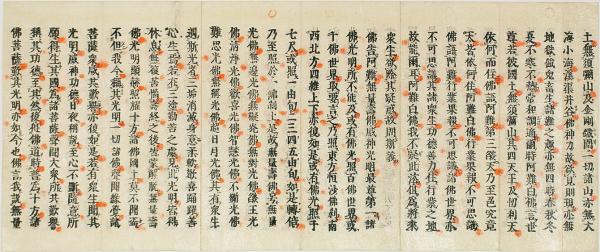 土無須彌山及金剛鐵圍一切諸山亦無大
海小海溪渠井谷佛神力故欲見則現亦無
地獄餓鬼畜生諸難之趣亦無四時春秋冬
夏不寒不熱常和調適爾時阿難白佛言世
尊若彼國土無須彌山其四天王及忉利天
依何而住佛語阿難第三炎天乃至色究竟
天皆依何住阿難白佛行業果報不可思議
佛語阿難行業果報不可思議諸佛世界亦
不可思議其諸衆生功德善力住行業之地
故能爾耳阿難白佛我不疑此法但爲將來
衆生欲除其疑惑故問斯義
佛告阿難無量壽佛威神光明最尊第一諸
佛光明所不能及或有佛光照百佛世界或
千佛世界取要言之乃照東方恒沙佛刹南
西北方四維上下亦復如是或有佛光照于
七尺或照一由旬二三四五由旬如是轉倍
乃至照於一佛刹土是故無量壽佛號無量
光佛無邊光佛無礙光佛無對光佛炎王光
佛清淨光佛歡喜光佛智慧光佛不斷光佛
難思光佛無稱光佛超日月光佛其有衆生
遇斯光者三垢消滅身意柔軟歡喜踊躍善
心生焉若在三塗勤苦之處見此光明皆得
休息無復苦惱壽終之後皆蒙解脫無量壽
佛光明顯赫照耀十方諸佛國土莫不聞焉
不但我今稱其光明一切諸佛聲聞緣覺諸
菩薩衆咸共歎譽亦復如是若有衆生聞其
光明威神功德日夜稱說至心不斷隨意所
願得生其國爲諸菩薩聲聞大衆所共歎譽
稱其功德至其然後得佛道時普爲十方諸
佛菩薩歎其光明亦如今也佛言我說無量